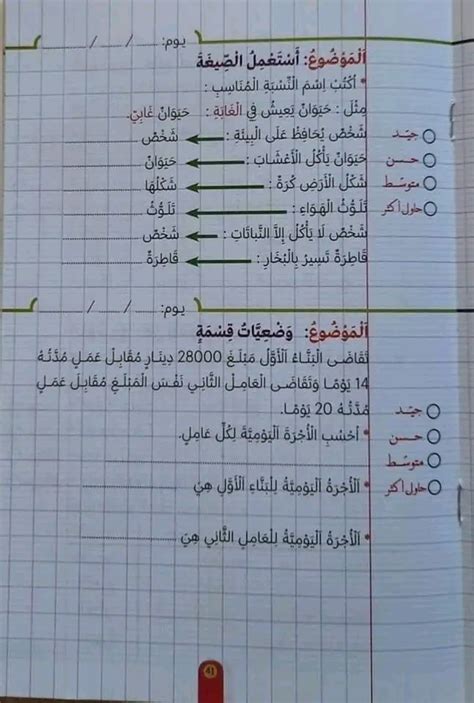 يوم: ...... / ...... / ......
اَلْمَوْضُوعُ: أَسْتَعْمِلُ الصِّيغَةَ
• أَكْتُبُ اِسْمَ النِّسْبَةِ الْمُنَاسِبِ :
مِثْلَ : حَيَوَانٌ يَعِيشُ فِي الْغَابَةِ : حَيَوَانٌ غَابِيٌّ.
جيّد شَخْصٌ يُحَافِظُ عَلَى الْبِيئَةِ : شَخْصٌ ......
حسن حَيَوَانٌ يَأْكُلُ الْأَعْشَابَ : حَيَوَانٌ ......
متوسّط شَكْلُ الْأَرْضِ كُرَةٌ : شَكْلُهَا ......
حاول أكثر تَلَوُّثُ الْهَوَاءِ : تَلَوُّثٌ ......
شَخْصٌ لَا يَأْكُلُ إِلَّا النَّبَاتَاتِ : شَخْصٌ ......
قَاطِرَةٌ تَسِيرُ بِالْبُخَارِ : قَاطِرَةٌ ......
يوم: ...... / ...... / ......
اَلْمَوْضُوعُ: وَضْعِيَّاتُ قِسْمَةٍ
تَقَاضَى الْبَنَّاءُ الْأَوَّلُ مَبْلَغَ 28000 دِينَارٍ مُقَابِلَ عَمَلٍ مُدَّتُهُ
14 يَوْمًا وَتَقَاضَى الْعَامِلُ الثَّانِي نَفْسَ الْمَبْلَغِ مُقَابِلَ عَمَلٍ
جيّد مُدَّتُهُ 20 يَوْمًا.
حسن • أَحْسُبُ الْأُجْرَةَ الْيَوْمِيَّةَ لِكُلِّ عَامِلٍ.
متوسّط
حاول أكثر • اَلْأُجْرَةُ الْيَوْمِيَّةُ لِلْبَنَّاءِ الْأَوَّلِ هِيَ ......
• اَلْأُجْرَةُ الْيَوْمِيَّةُ لِلْعَامِلِ الثَّانِي هِيَ ......
41